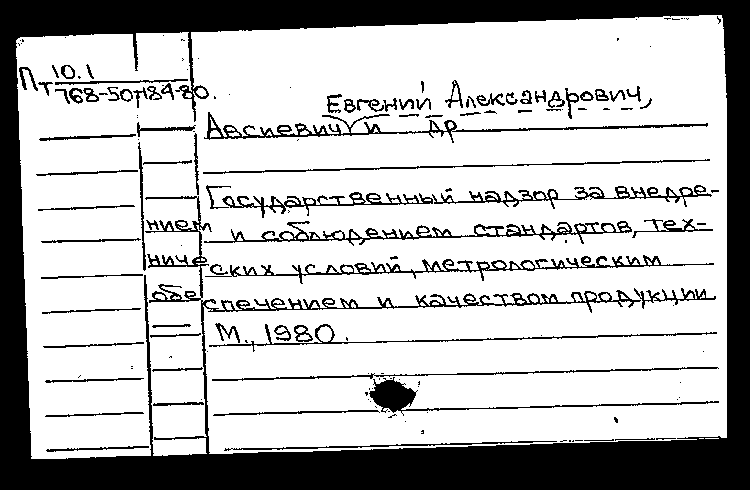 Пт 10.1
768-50+184-80.
Евгений Александрович,
Авсиевич и др
Государственный надзор за внедре-
нием и соблюдением стандартов, тех-
ниче ских условий, метрологическим
обе спечением и качеством продукции
М., 1980.